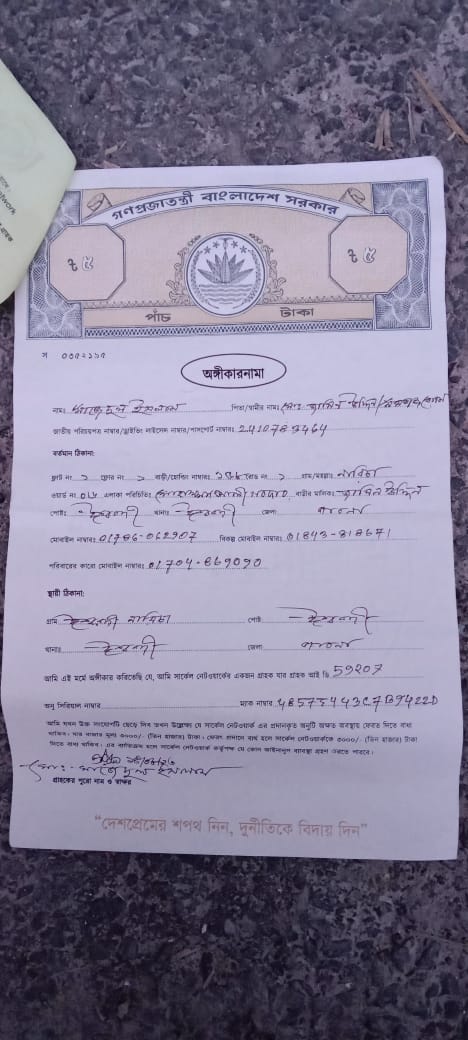 work
গণপ্রজাতন্ত্রী বাংলাদেশ সরকার
৳ ৫
৳ ৫
পাঁচ টাকা
স ০৩৫২১৯৫
অঙ্গীকারনামা
নাম: পিতা/স্বামীর নাম:
জাতীয় পরিচয়পত্র নাম্বার/ড্রাইভিং লাইসেন্স নাম্বার/পাসপোর্ট নাম্বার: 2410783464
বর্তমান ঠিকানা:
ফ্লাট নং ফ্লোর নং বাড়ী/হোল্ডিং নাম্বার: রোড নং গ্রাম/মহল্লা: নারিচা
ওয়ার্ড নং এলাকা পরিচিতি: বাড়ীর মালিক:
পোষ্ট: ঈশ্বরদী থানা: ঈশ্বরদী জেলা পাবনা
মোবাইল নাম্বার: 01786-062907 বিকল্প মোবাইল নাম্বার: 01843-818671
পরিবারের কারো মোবাইল নাম্বার: 01704-869090
স্থায়ী ঠিকানা:
গ্রাম ঈশ্বরদী নারিচা পোষ্ট ঈশ্বরদী
থানা: ঈশ্বরদী জেলা পাবনা
আমি এই মর্মে অঙ্গীকার করিতেছি যে, আমি সার্কেল নেটওয়ার্কের একজন গ্রাহক যার গ্রাহক আই ডি 59207
অনু সিরিয়াল নাম্বার ম্যাক নাম্বার 48575443C7B9422D
আমি যখন উক্ত সংযোগটি ছেড়ে দিব তখন উল্লেখ্য যে সার্কেল নেটওয়ার্ক এর প্রদানকৃত অনুটি অক্ষত অবস্থায় ফেরত দিতে বাধ্য
থাকিব। যার বাজার মূল্য ৩০০০/- (তিন হাজার) টাকা। ফেরত প্রদানে ব্যর্থ হলে সার্কেল নেটওয়ার্ককে ৩০০০/- (তিন হাজার) টাকা
দিতে বাধ্য থাকিব। এর ব্যতিক্রম হলে সার্কেল নেটওয়ার্ক কর্তৃপক্ষ যে কোন আইনানুগ ব্যবস্থা গ্রহণ করতে পারবে।
গ্রাহকের পুরো নাম ও স্বাক্ষর
“দেশপ্রেমের শপথ নিন, দুর্নীতিকে বিদায় দিন”